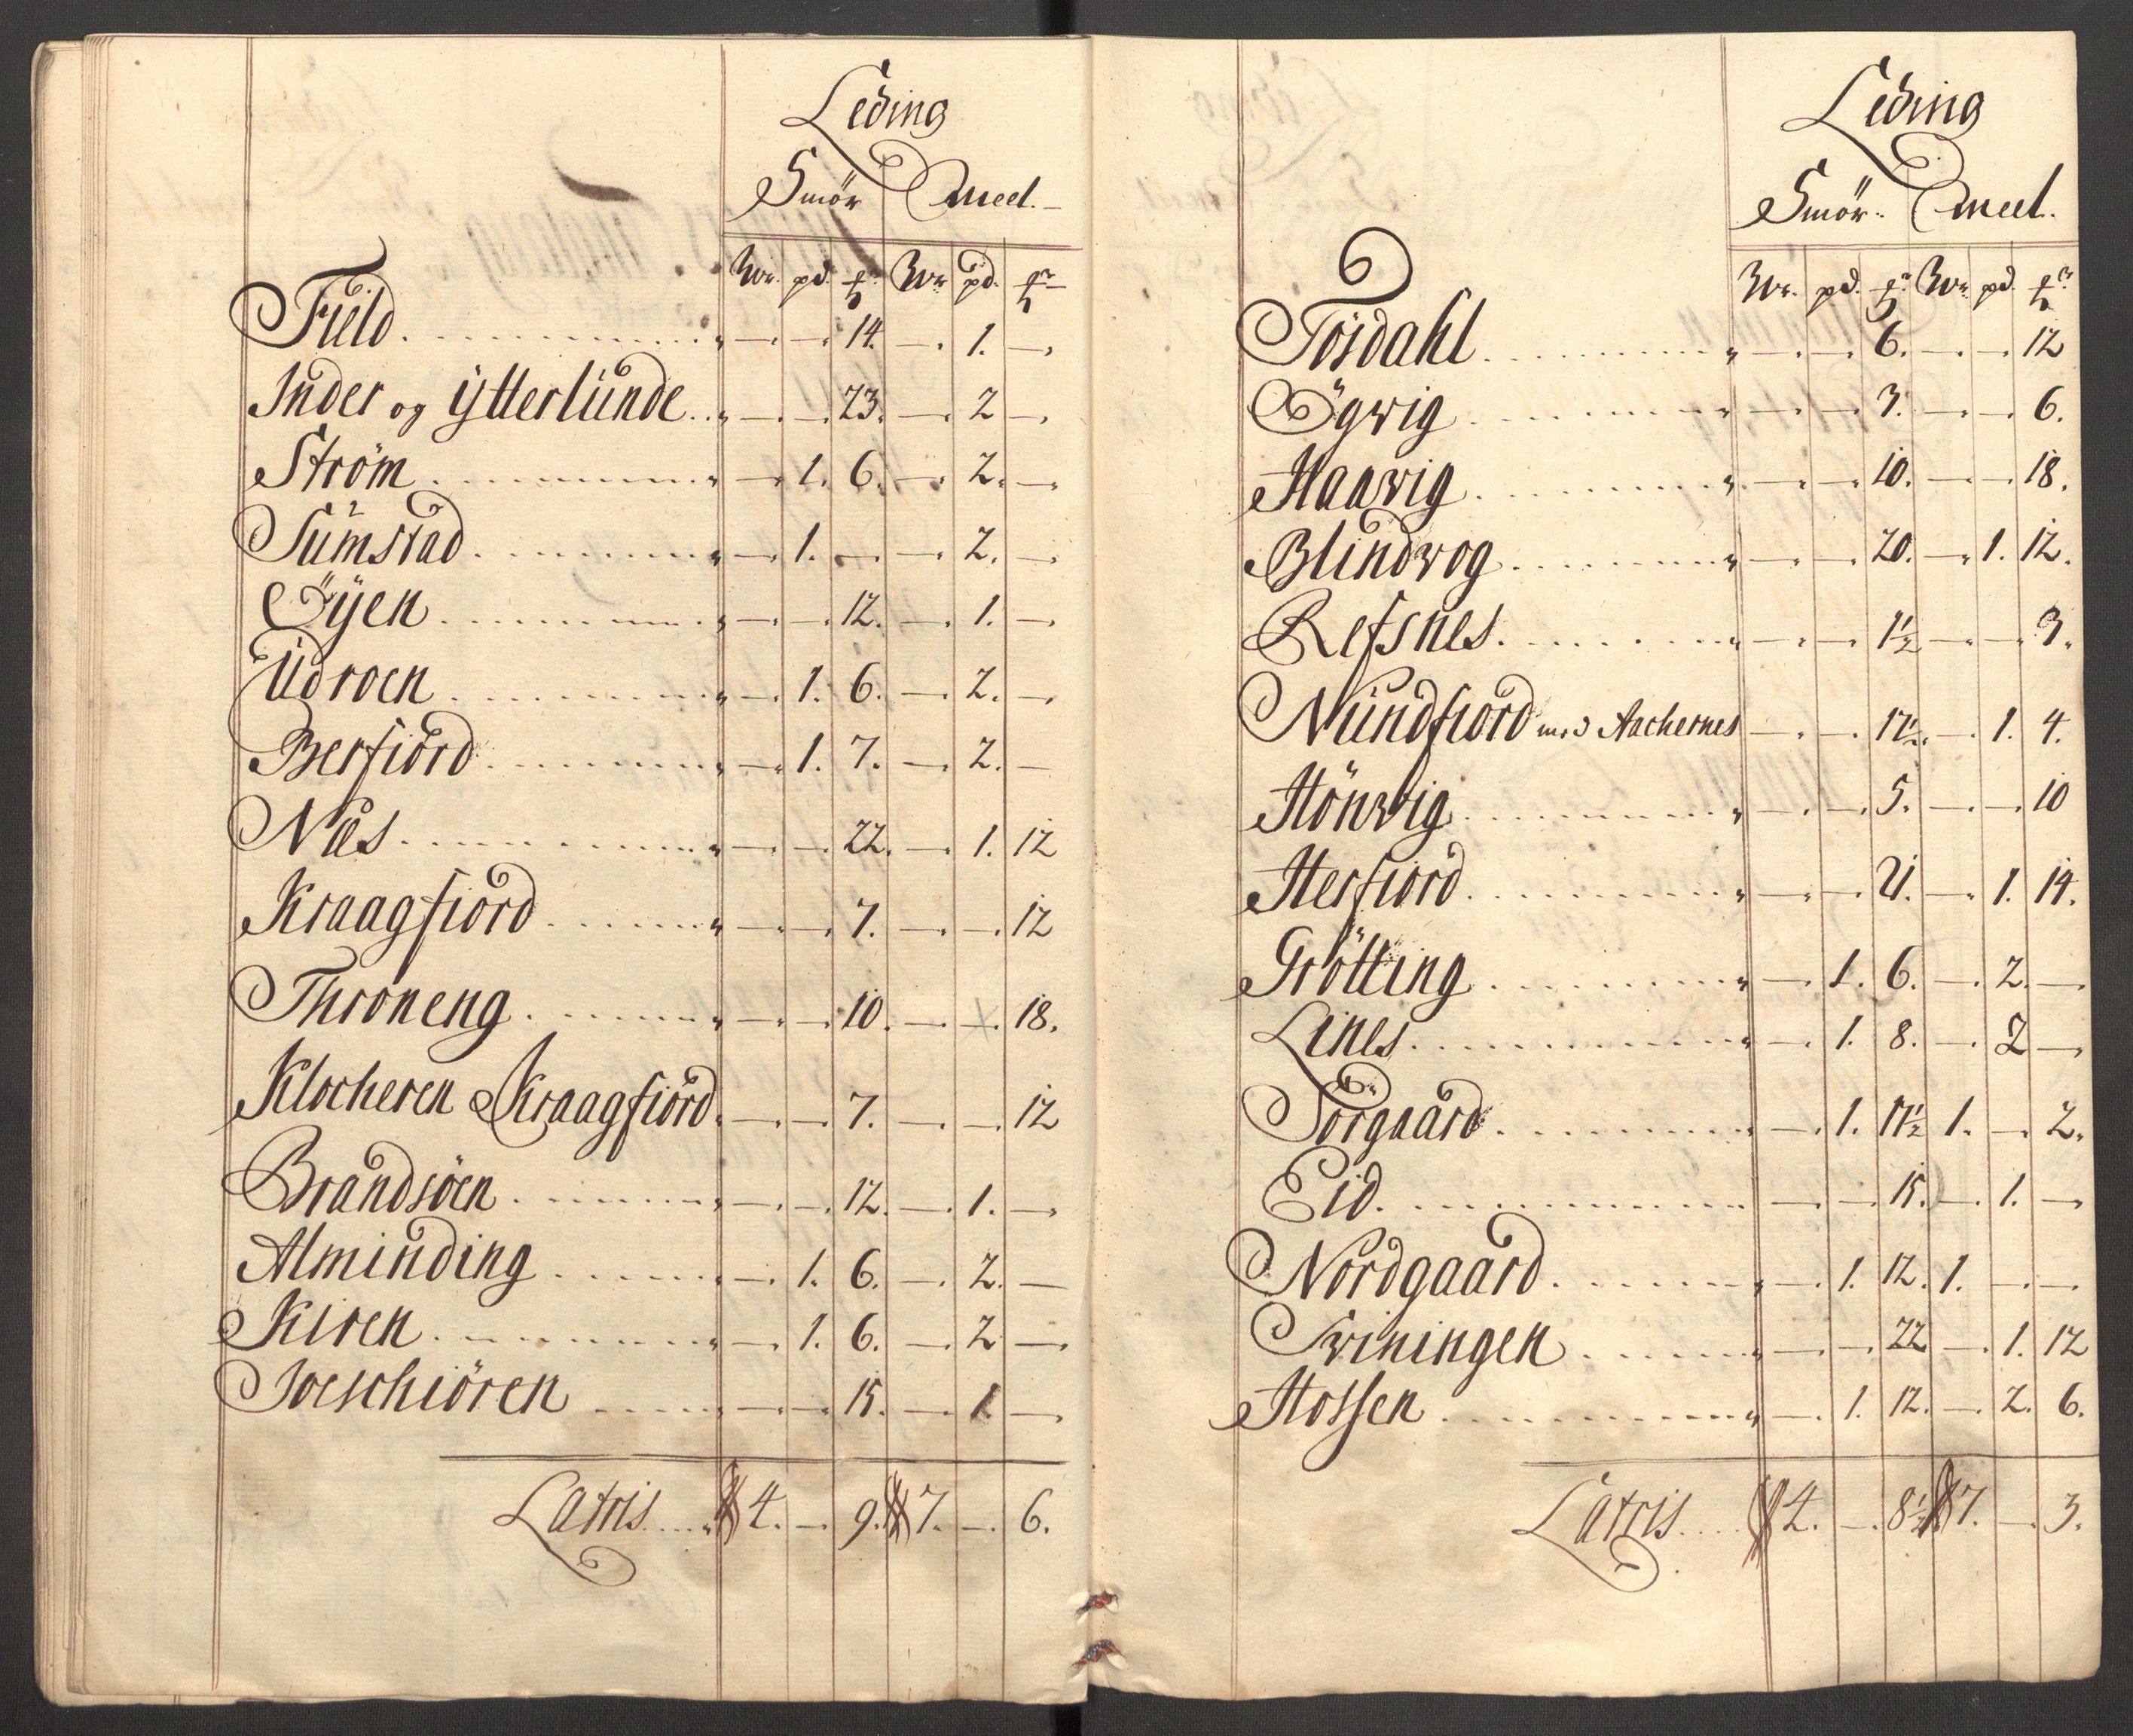 Leding
Smör Meel.
Wr. pd. ℔r Wr pd. ℔r
Field . . . — — 14. — 1. —
Inder og Ytterlünde . . — — 23. — 2 —
Ström . . . — 1. 6. — 2. —
Sümstad . . . — 1. — — 2. —
Öÿen . . . — — 12. — 1. —
Üdroen . . . — 1. 6. — 2. —
Berfiord . . . — 1. 7. — 2. —
Næs . . . — — 22. — 1. 12
Kraagfiord . . . — — 7. — — 12
Throneng . . . — — 10. — — 18.
Klocheren Kraagfiord — — 7. — — 12
Brandsöen . . . — — 12. — 1. —
Alminding . . . — 1. 6. — 2. —
Kiren . . . — 1. 6. — 2 —
Joeschiören . . . — — 15. — 1 —
Latris . . . 4. — 9. 7. — 6.
Leding
Smör. Meel.
Wr. pd. ℔r Wr. pd. ℔r
Tösdahl . . . — — 6. — — 12
Ögvig . . . — — 3. — — 6.
Haavig . . . — — 10. — — 18.
Blindvog . . . — — 20. — 1. 12.
Refsnes . . . — — 1½ — — 3.
Nündfiord med Aachernes — — 17½. — 1. 4.
Hönvig . . . — — 5. — — 10
Herfiord . . . — — 21. — 1. 14.
Grötting . . . — 1. 6. — 2. —
Lines . . . — 1. 8. — 2 —
Sörgaard . . . — 1. 11½ 1. — 2.
Eid . . . — — 15. — 1. —
Nordgaard . . . — 1. 12. 1. — —
Sviningen . . . — — 22 — 1. 12
Hossen . . . — 1. 12. — 2. 6.
Latris . . . 4. — 8½ 7. — 3.